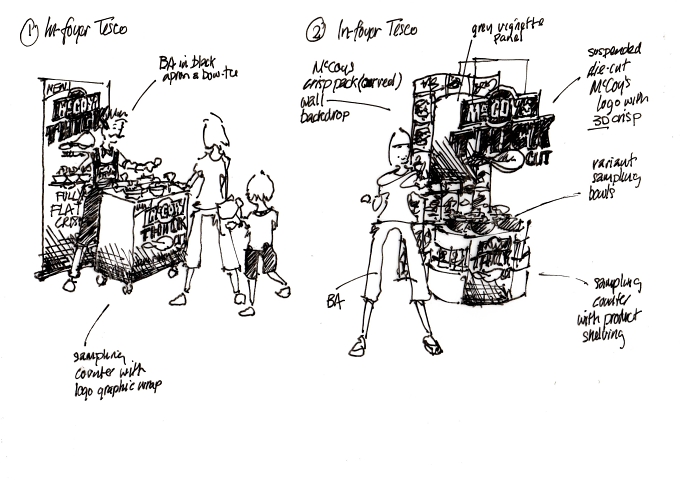 1 In-foyer Tesco
BA in black
apron & bow-tie
MENU
McCOY'S
THICK
FULLY
FLAT
CRISP
McCOY'S
THICK
CUT
sampling
counter with
logo graphic wrap
2 In-foyer Tesco
grey vignette
panel
McCoys
crisp pack (curved)
wall
backdrop
suspended
die-cut
McCoy's
logo with
3D crisp
McCOY'S
THICK
CUT
variant
sampling
bowls
BA
sampling
counter
with product
shelving